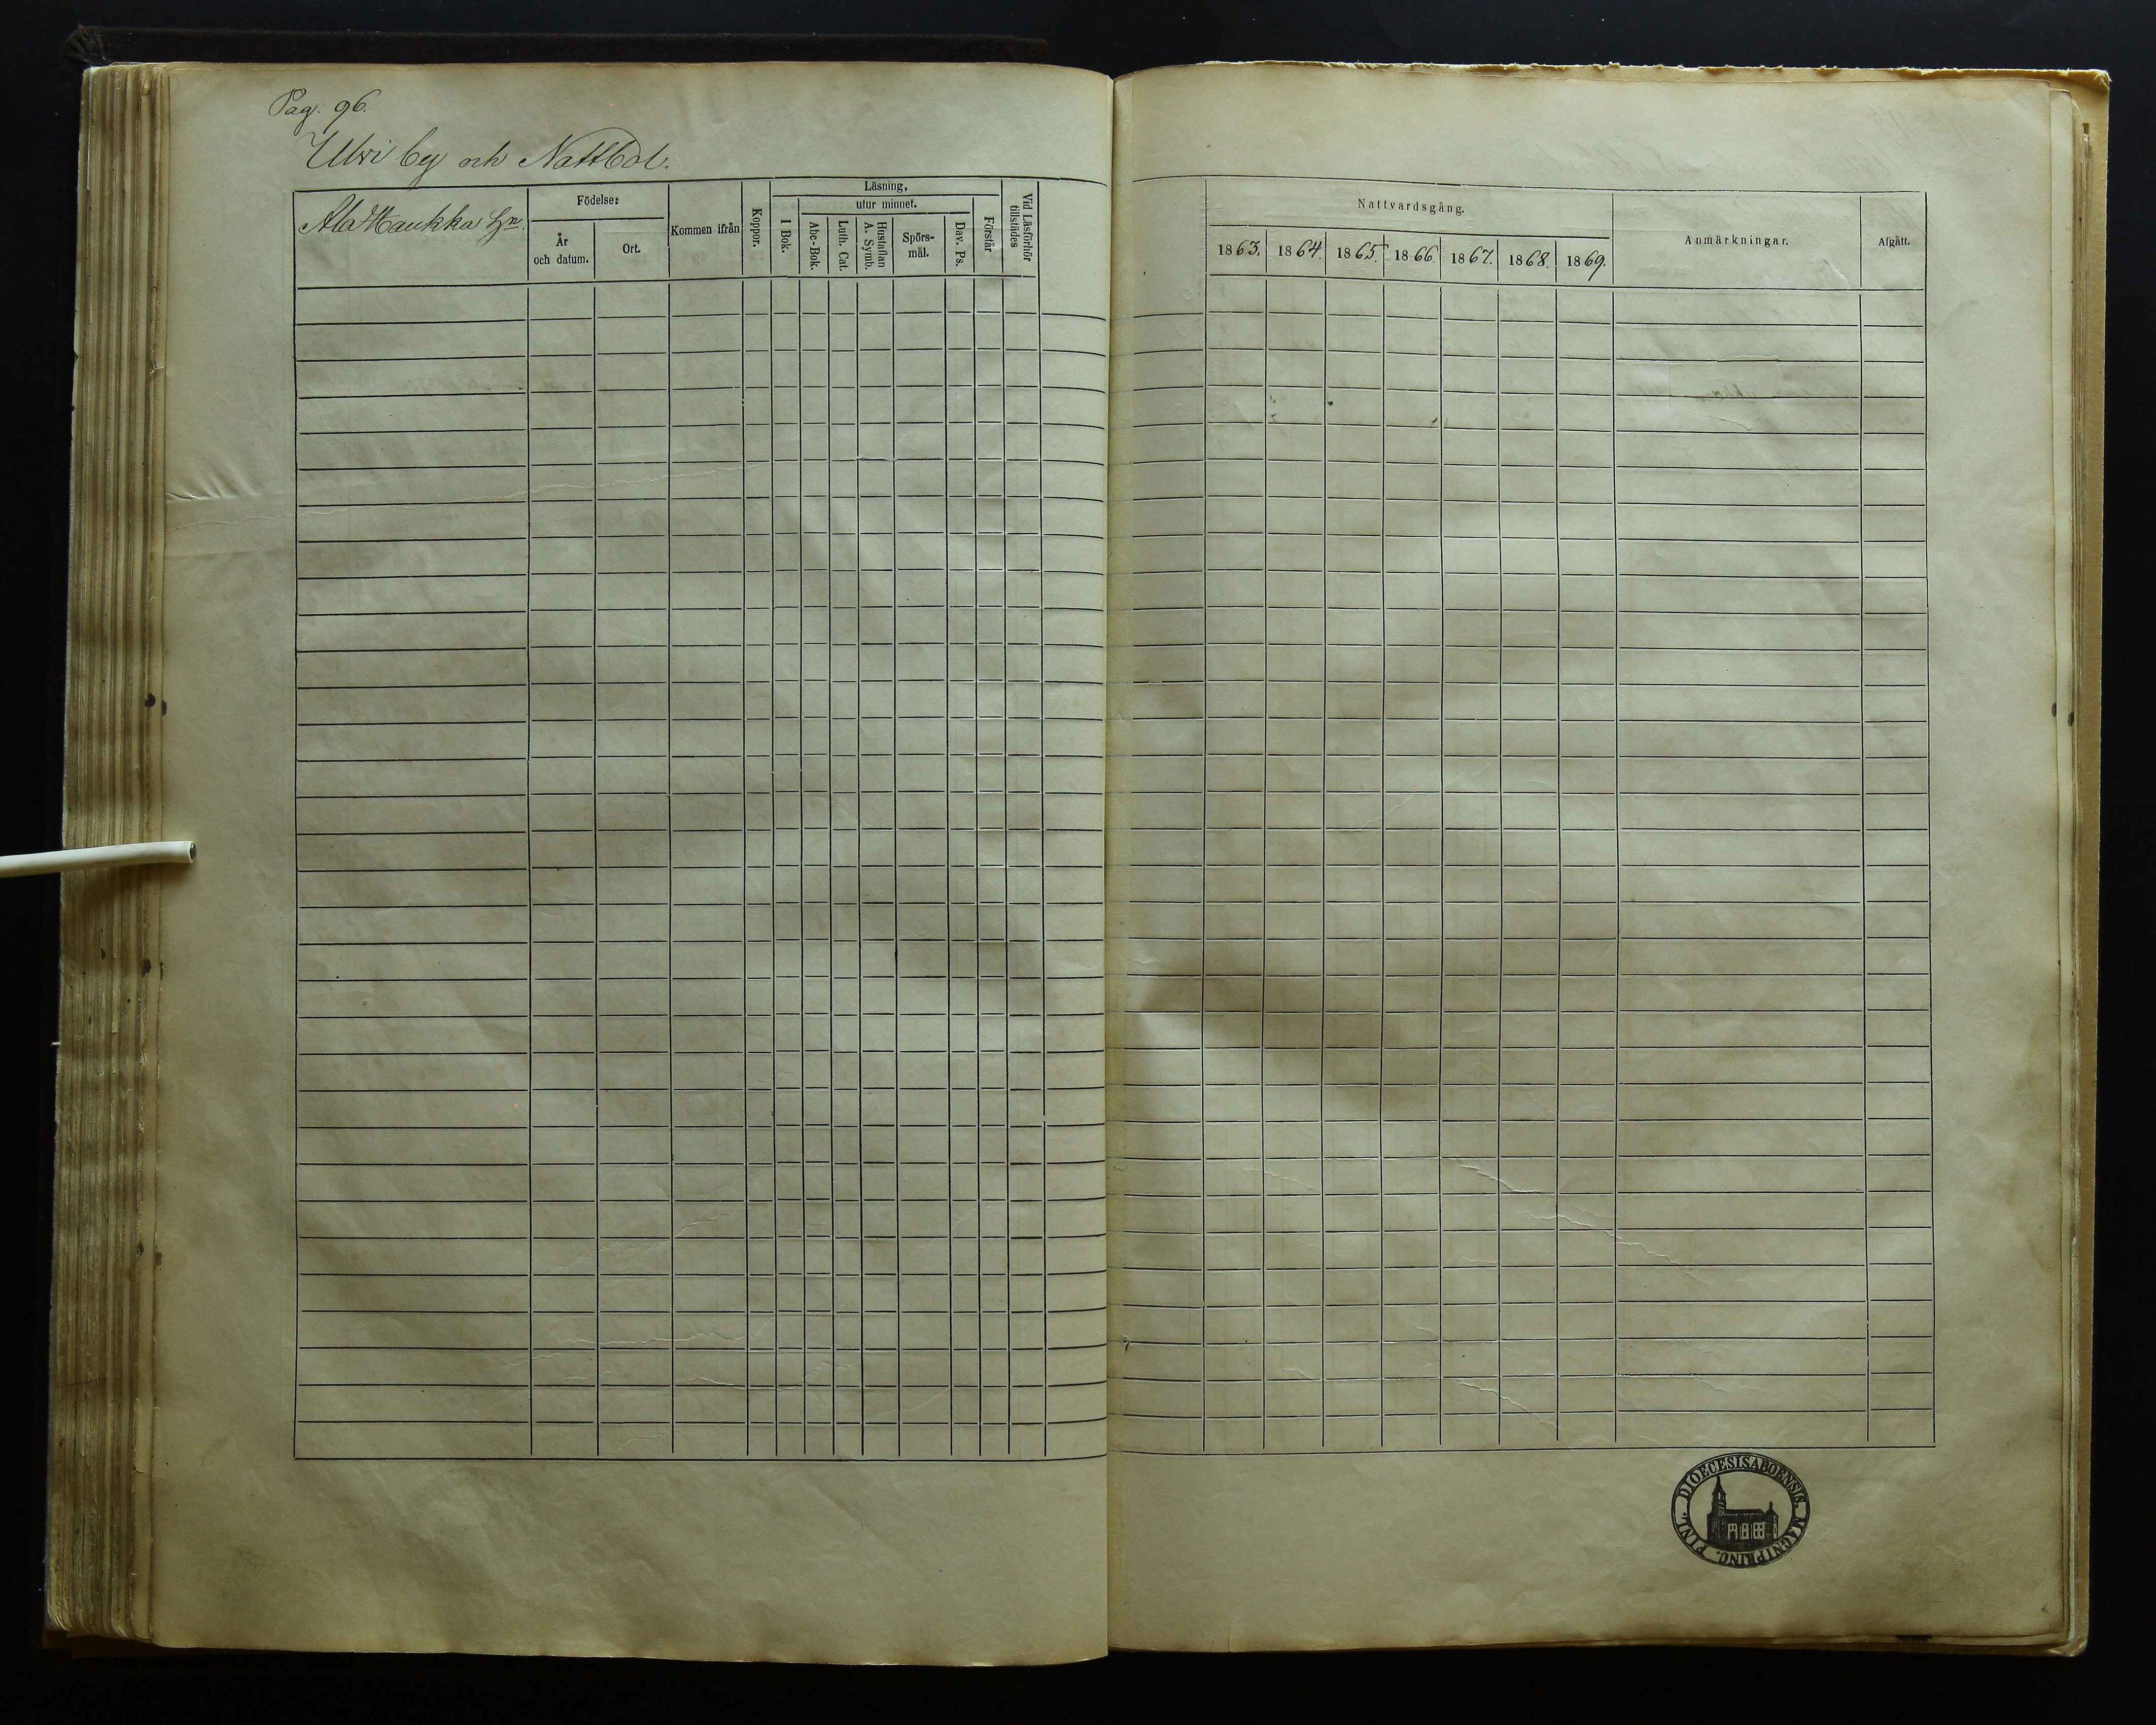 Pag: 96.
Ulvi by och Nattbol.
AlaHaukka Hn.
Födelse:
År
och datum.
Ort.
Kommen ifrån
Koppor.
Läsning,
utur minnet.
I Bok.
Abc-Bok.
Luth. Cat.
Hustaflan
A. Symb.
Spörs-
mål.
Dav. Ps.
Förstår
Vid Läsförhör
tillstädes
Nattvardsgång.
1863. 1864. 1865. 1866. 1867. 1868. 1869.
Anmärkningar.
Afgått.
DIOECESIS ABOENSIS. MAGNI PRINC. FINL.